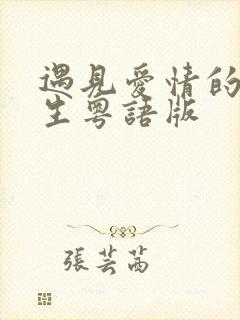 遇見愛情的
生粵語版
張芸茜